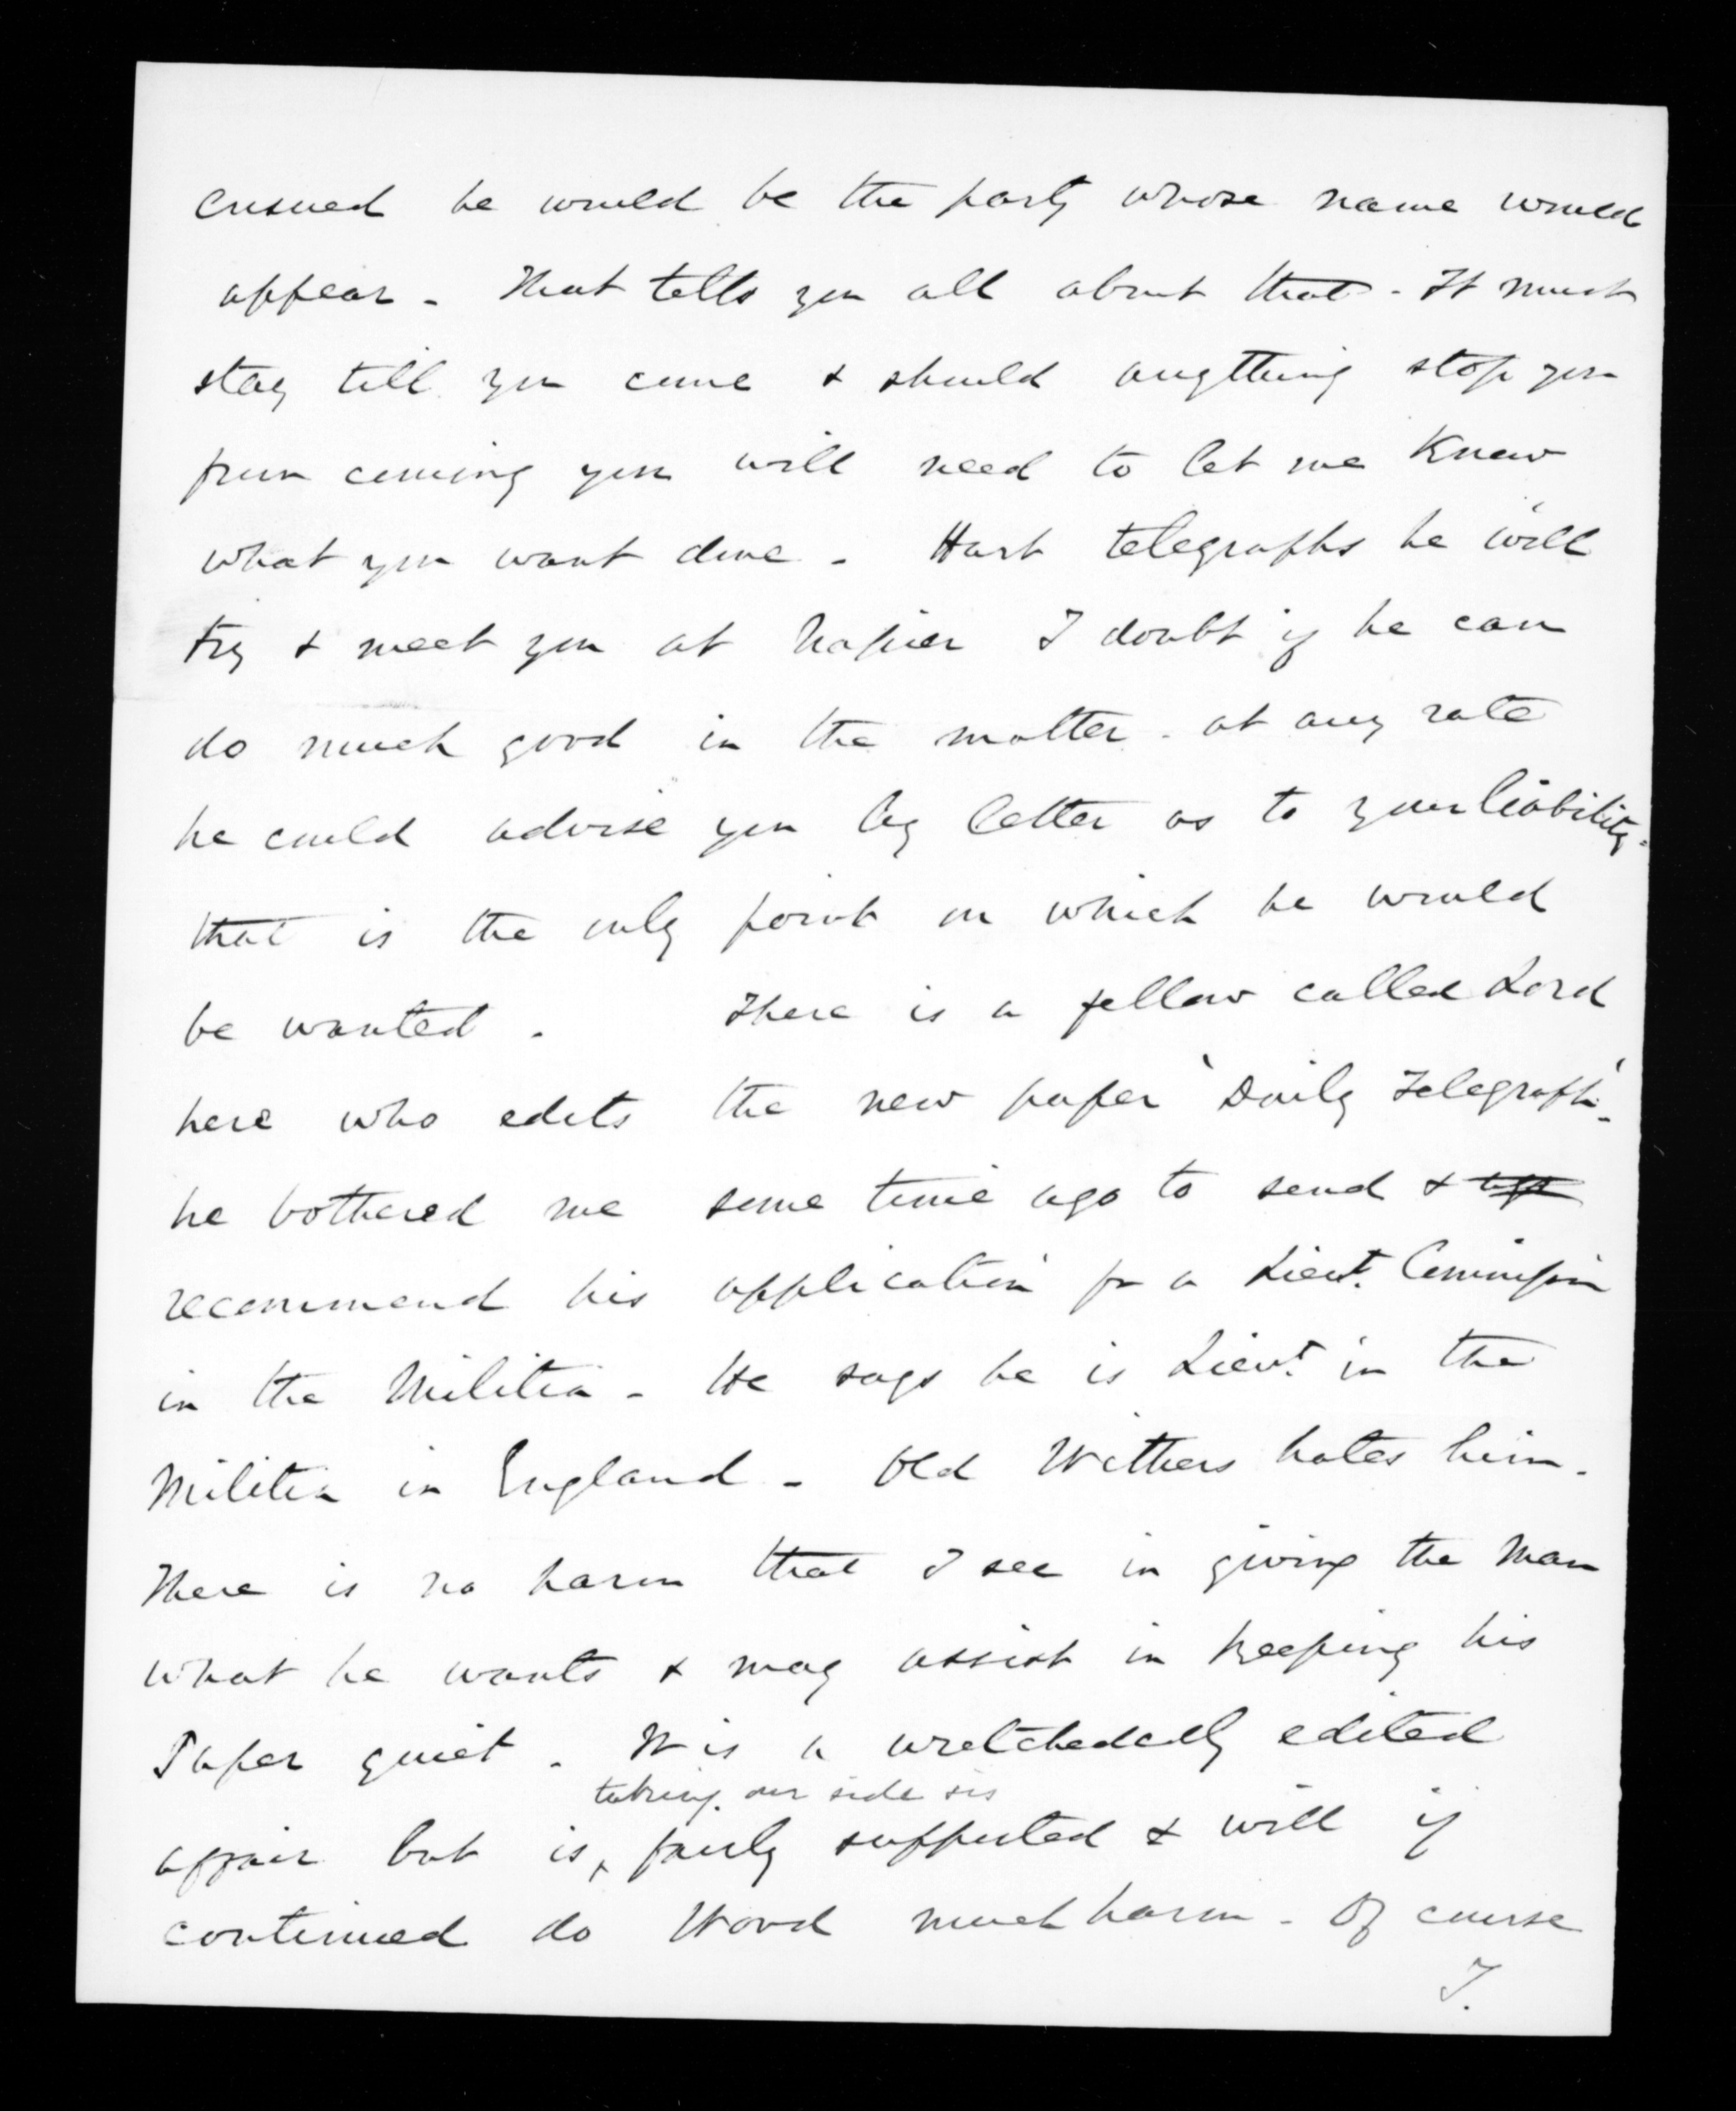 ensued he would be the party whose name would
appear - That tells you all about that - It must
stay till you come & should anything stop you
from coming you will need to let me know
what you want done - Hart telegraphs he will
try & meet you at Napier I doubt if he can
do much good in the matter - at any rate
he could advise you by letter as to your liability -
that is the only point on which he would
be wanted - There is a fellow called Lord
here who edits the new paper 'Daily Telegraph' -
he bothered me some time ago to send &
recommend his application for a Lieut. Commission
in the Militia - He says he is Lieut. in the
Militia in England - Old Withers hates him -
There is no harm that I see in giving the man
what he wants & may assist in keeping his
Paper quiet - It is a wretchedly edited
taking our side
affair but is fairly supported & will if
continued do Wood much harm - Of course
I.